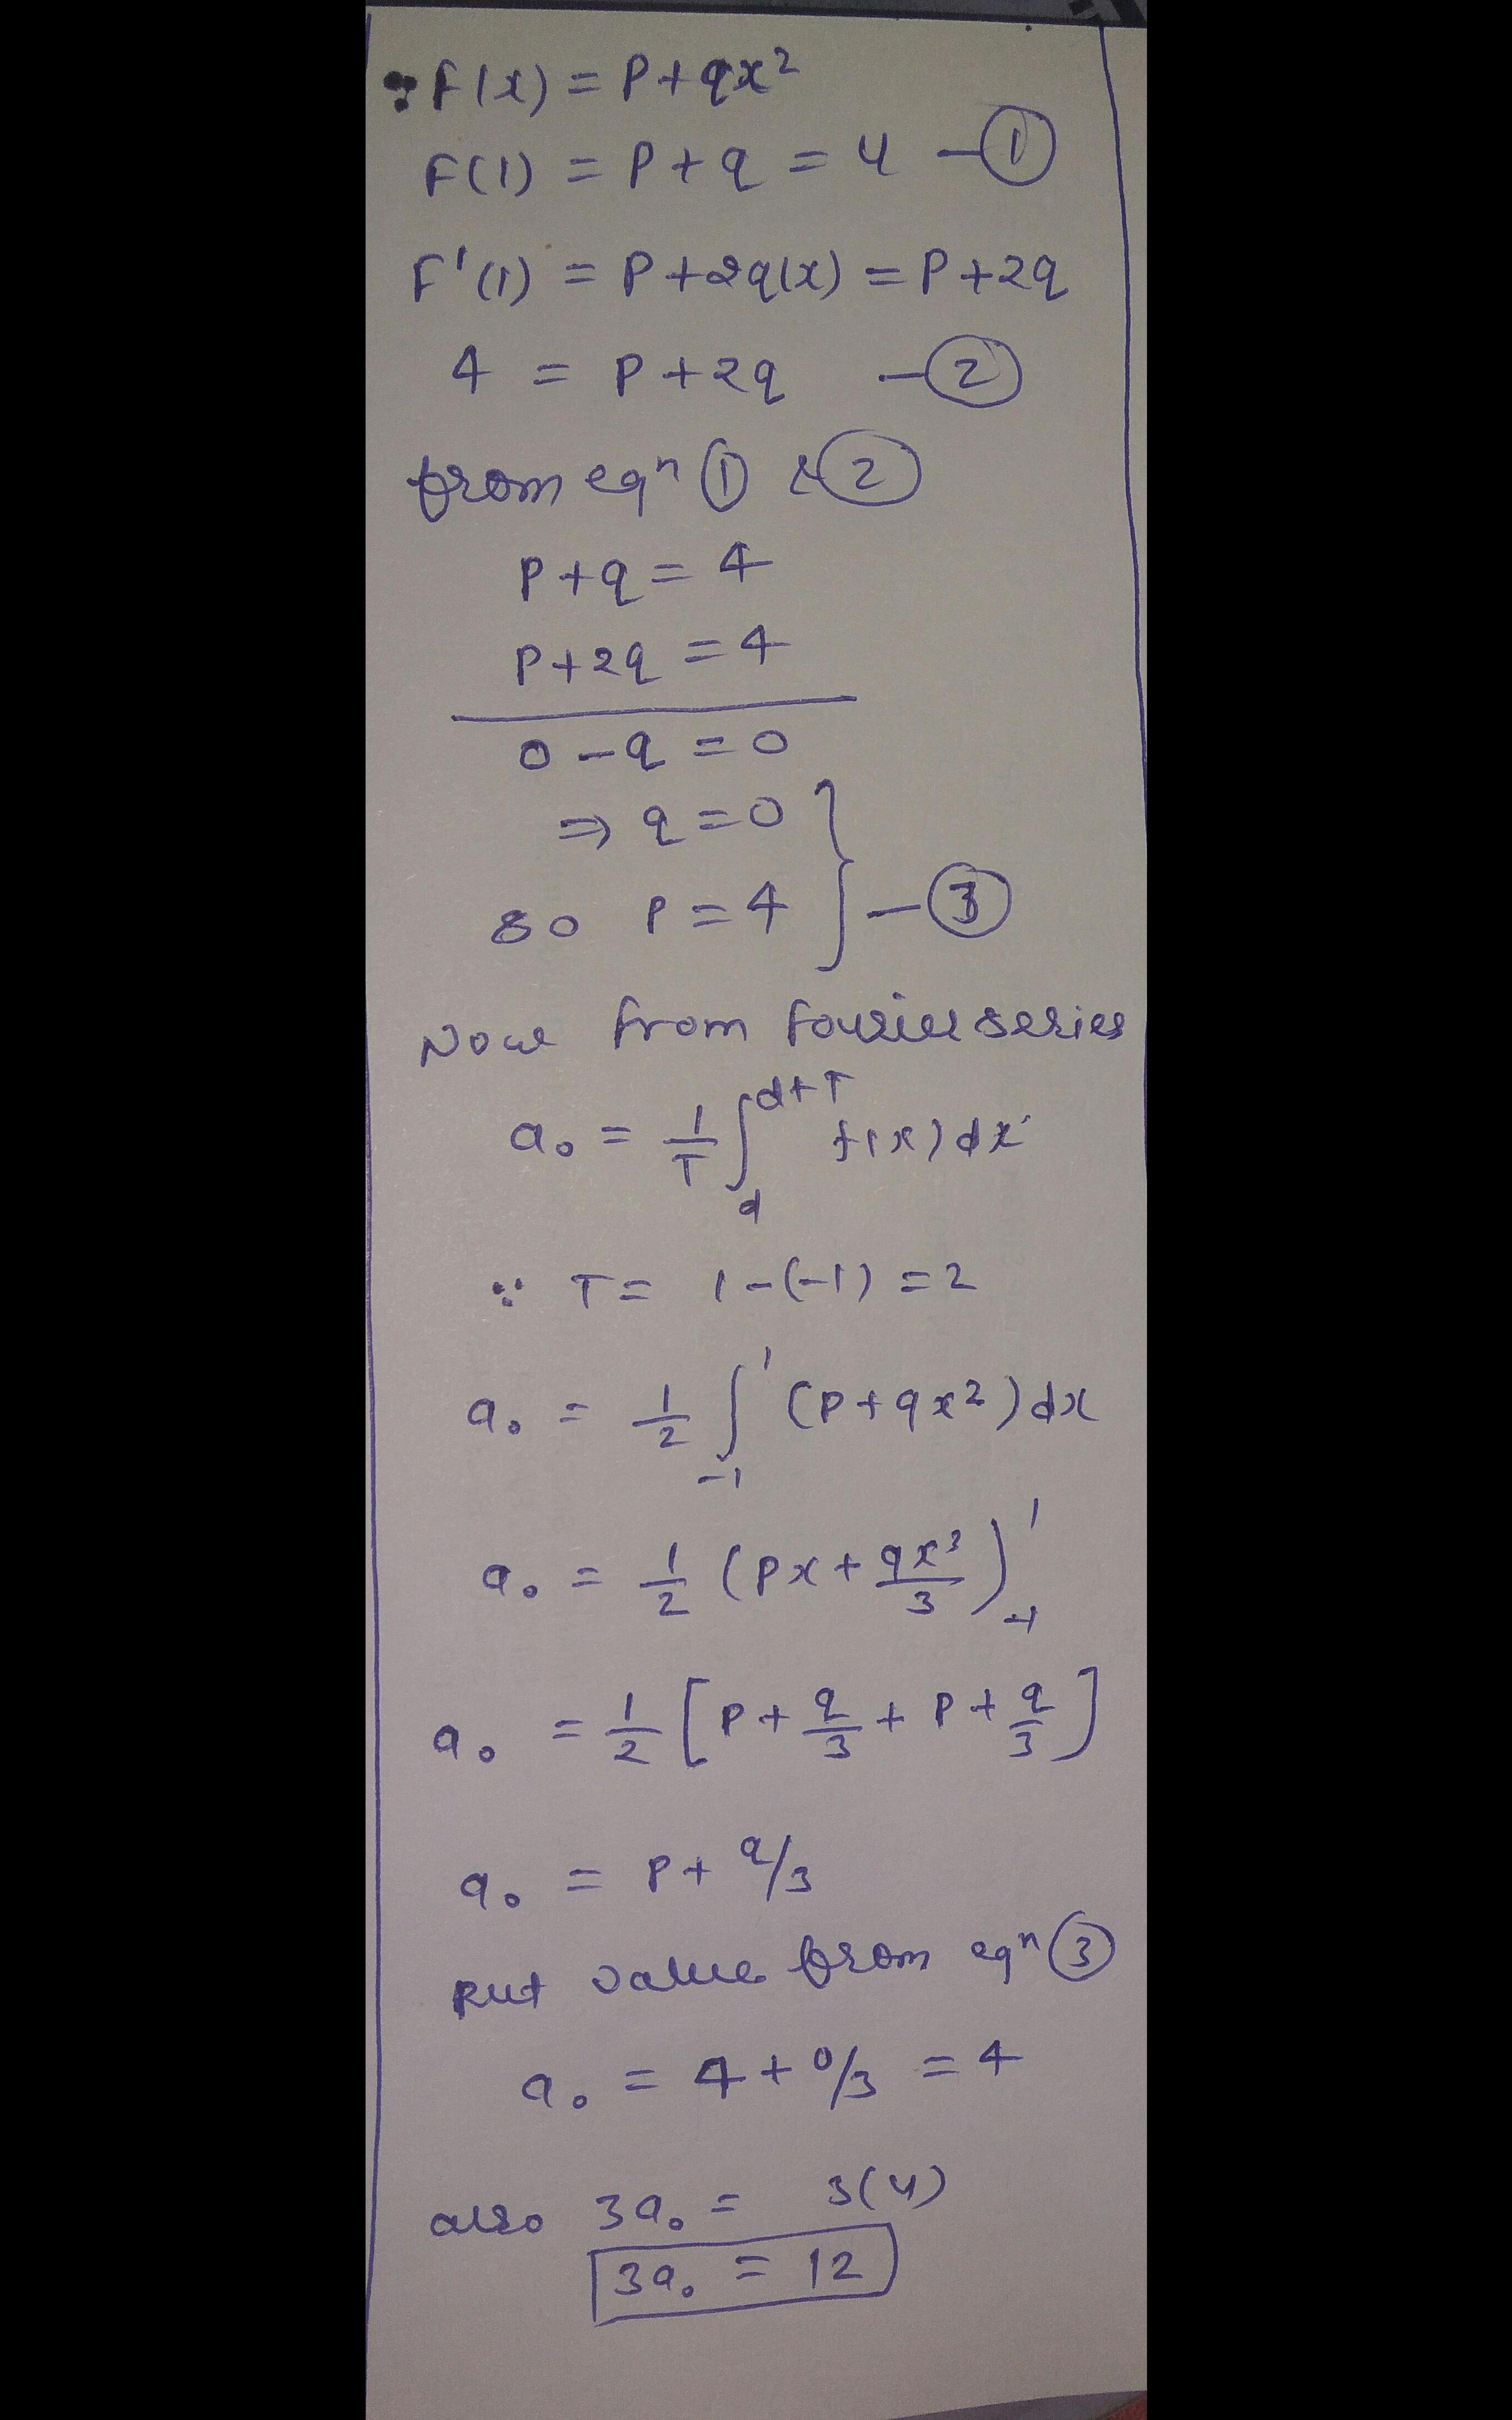 ∵ F(x) = P + qx²
F(1) = P + q = 4 — ①
F'(1) = P + 2q(x) = P + 2q
4 = P + 2q — ②
from eqⁿ ① & ②
P + q = 4
P + 2q = 4
0 – q = 0
⇒ q = 0
so P = 4 } — ③
Now from fourier series
a₀ = 1/T ∫_d^{d+T} f(x) dx
∵ T = 1 – (–1) = 2
a₀ = 1/2 ∫_{-1}^{1} (P + qx²) dx
a₀ = 1/2 (Px + qx³/3)_{-1}^{1}
a₀ = 1/2 [P + q/3 + P + q/3]
a₀ = P + q/3
Put value from eqⁿ ③
a₀ = 4 + 0/3 = 4
also 3a₀ = 3(4)
3a₀ = 12